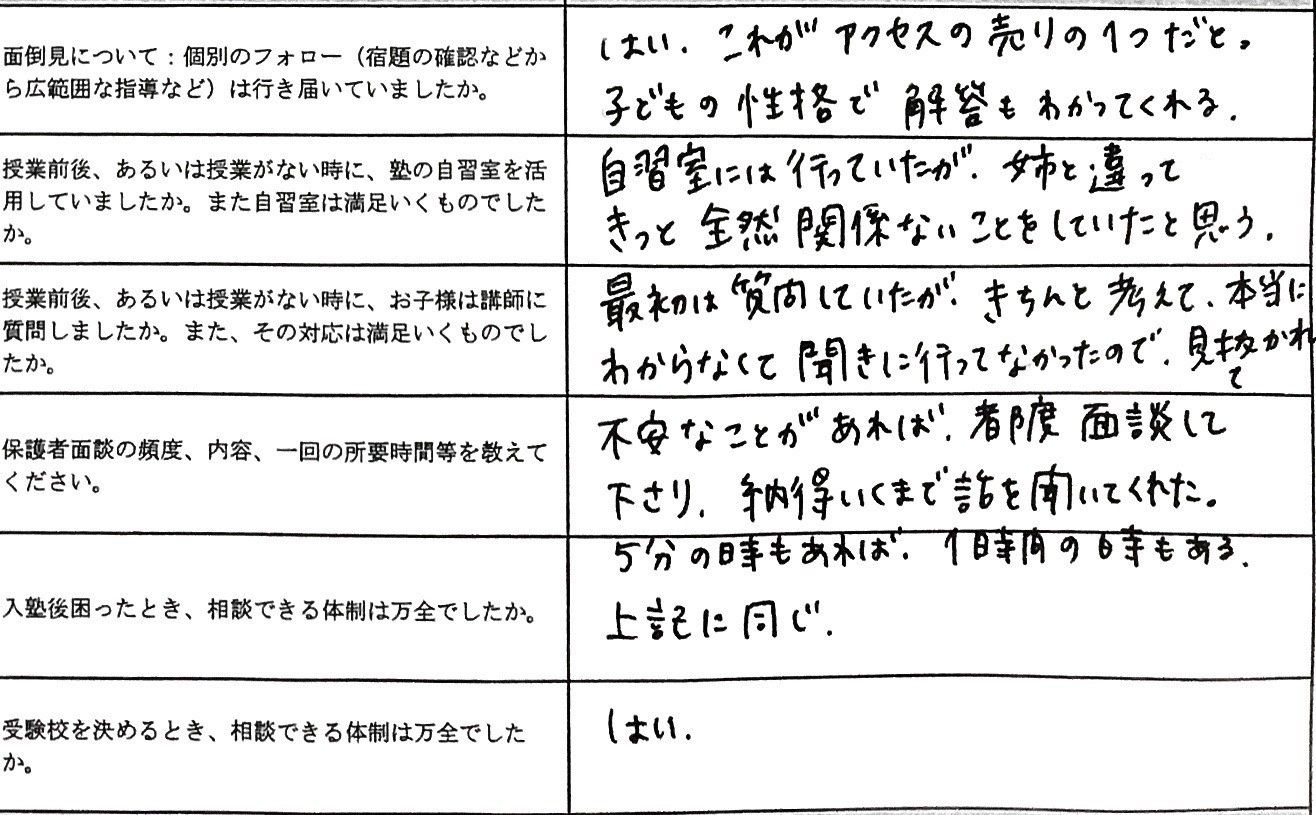 面倒見について：個別のフォロー（宿題の確認などか
ら広範囲な指導など）は行き届いていましたか。
はい．これがアクセスの売りの1つだと。
子どもの性格で解答もわかってくれる．
授業前後、あるいは授業がない時に、塾の自習室を活
用していましたか。また自習室は満足いくものでした
か。
自習室には行っていたが．姉と違って
きっと全然関係ないことをしていたと思う．
授業前後、あるいは授業がない時に、お子様は講師に
質問しましたか。また、その対応は満足いくものでし
たか。
最初は質問していたが．きちんと考えて、本当に
わからなくて聞きに行ってなかったので．見抜かれ
て
保護者面談の頻度、内容、一回の所要時間等を教えて
ください。
不安なことがあれば．都度面談して
下さり．納得いくまで話を聞いてくれた。
5分の時もあれば．1時間の時もある．
入塾後困ったとき、相談できる体制は万全でしたか。
上記に同じ．
受験校を決めるとき、相談できる体制は万全でした
か。
はい．